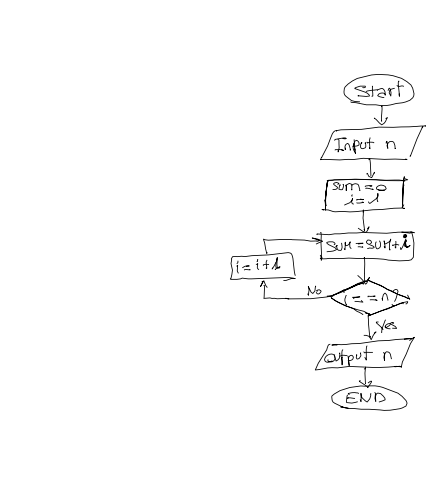 Start
Input n
sum = 0
i = 1
sum = sum + i
i = i + 1
No
i = = n?
Yes
output n
END